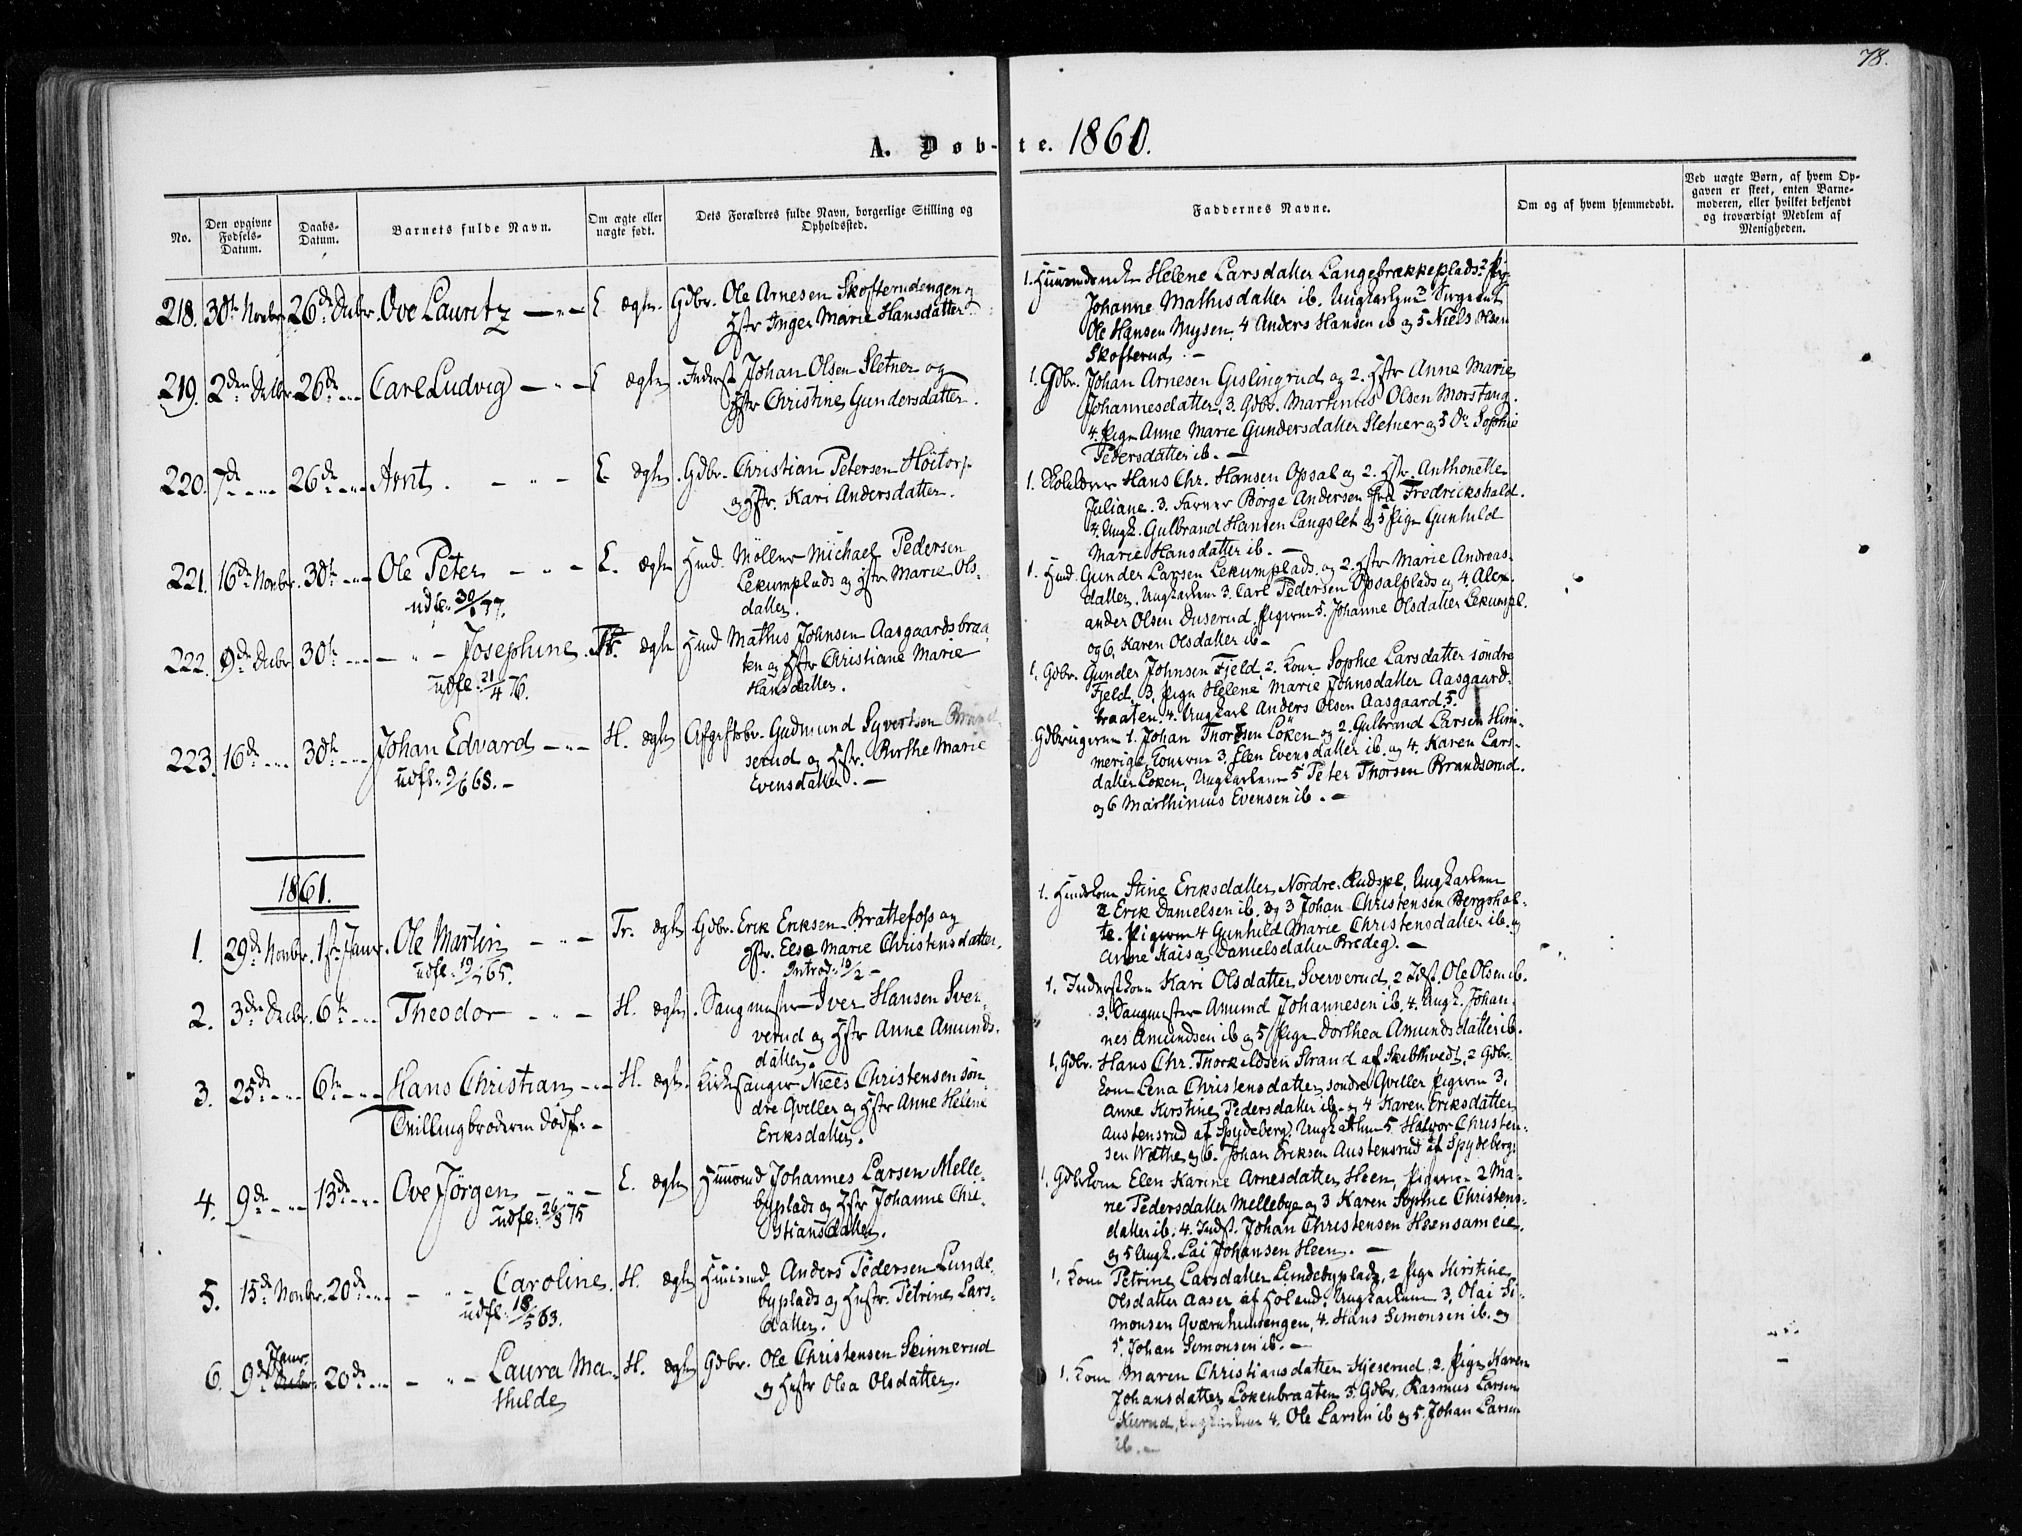 78.
A. Døbte. 1860.
No.
Den opgivne Fødsels-Datum.
Daabs-Datum.
Barnets fulde Navn.
Om ægte eller uægte født.
Dets Forældres fulde Navn, borgerlige Stilling og Opholdssted.
Faddernes Navne.
Om og af hvem hjemmedøbt.
Ved uægte Børn, af hvem Opgaven er skeet, enten Barnemoderen, eller hvilket bekjendt og troværdigt Medlem af Menigheden.
218. 30te Novbr 26de Decbr. Ove Lauritz — „ — E ægte. Gdbr. Ole Arnesen Skofterudengen og
Hstr Inger Marie Hansdatter.
Helene Larsdatter Langebrækkeplads 2 Pig.
Johanne Mathisdatter ib. Ungkarlene 3 Sergeant
Ole Hansen Mysen, 4 Anders Hansen ib og 5 Niels Olsen
Skofterud. —
219. 2den Decbr 26de „ Carl Ludvig — „ — E ægte. Inderst Johan Olsen Sletner og
Hstr Christine Gundersdatter.
1. Gdbr. Johan Arnesen Gislingrud og 2. Hstr Anne Marie
Johannesdatter, 3. Gdbr. Martinius Olsen Morstang.
4. Pige Anne Marie Gundersdatter Sletner og 5 Do Sophie
Pedersdatter ib. —
220. 7de „ 26de „ Arnt. — „ — E. ægte. Gdbr. Christian Petersen Høitorp
og Hstr. Kari Andersdatter.
1. Skolelærer Hans Chr. Hansen Opsal og 2. Hstr. Anthonette
Juliane. 3. Farver Borge Andersen fra Fredrickshald.
4. Ungk. Gulbrand Hansen Langslet og 5 Pige Gunhild
Marie Hansdatter ib. —
221. 16de Novbr. 30te „ Ole Peter — „ — E. ægte Husd. Møller Michael Pedersen
Lekumplads og Hstr Marie Ols-
datter.
udfl. 30/1 77.
1. Husd. Gunder Larsen Lekumplads og 2. Hstr Marie Andreas-
datter. Ungkarlene 3. Carl Pedersen Opsalplads og 4. Alex-
ander Olsen Duserud. Pigerne 5. Johanne Olsdatter Lekumpl.
og 6. Karen Olsdatter ib —
222. 9de Decbr 30te „ — „ — Josephine. Tr. ægte Husd Mathis Johnsen Aasgaardsbraa-
ten og Hstr Christiane Marie
Hansdatter.
udfl. 21/4 76.
1. Gdbr. Gunder Johnsen Fjeld, 2. Kone Sophie Larsdatter søndre
Fjeld, 3. Pige Helene Marie Johnsdatter Aasgaard-
braaten. 4. Ungkarl Anders Olsen Aasgaard 5.
223. 16de „ 30te „ Johan Edvard — „ — H. ægte Afgiftsbr. Gudmund Syvertsen Brand-
serud og Hstr. Birthe Marie
Evensdatter. —
udfl. 9/6 68. —
Gdbrugerne 1. Johan Thorsen Løken og 2. Gulbrand Larsen Him-
merig, Konerne 3. Elen Evensdatter ib. og 4. Karen Lars-
datter Løken, Ungkarlene 5 Peter Thorsen Brandserud.
og 6 Marthinius Evensen ib. —
1861.
1. 29de Novbr. 1ste Janr. Ole Martin — „ — Tr. ægte Gdbr. Erik Eriksen Brattefoss og
Hstr. Else Marie Christensdatter.
Introd. 10/2 —
1. Husdskone Stine Eriksdatter Nordre Rudspl. Ungkarlene
2 Erik Danielsen ib. og 3 Johan Christensen Bergshol-
te. Pigerne 4 Gunhild Marie Christensdatter ib. og
Anne Kaisa Danielsdatter Bredeg. —
2. 3die Decbr. 6te „ Theodor — „ — H. ægte. Saugmester Iver Hansen Sver-
verud og Hstr Anne Amunds-
datter.
1. Inderstkone Kari Olsdatter Sververud, 2 Indst. Ole Olsen ib.
3. Saugmester Amund Johannesen ib, 4. Ungk. Johan-
nes Amundsen ib og 5 Pige Dorthea Amundsdatter ib.
3. 25de „ 6te „ Hans Christian — „ H. ægte. Kirkesanger Niels Christensen søn-
dre Qviller og Hstr Anne Helene
Eriksdatter.
Tvillingbroderen dødf. —
1. Gdbr. Hans Chr. Thorkildsen Strand af Skibthvedt, 2 Gdbr-
kone Lena Christensdatter søndre Qviller, Pigerne 3.
Anne Kirstine Pedersdatter ib. og 4 Karen Eriksdatter
Austensrud af Spydeberg. Ungkarlene 5 Halvor Christen-
sen Wæthe og 6. Johan Eriksen Austensrud af Spydeberg.
4. 9de „ 13de „ Ove Jørgen — „ — E. ægte Huusmd Johannes Larsen Melle-
byplads og Hstr Johanne Chri-
stiansdatter.
udfl. 26/3 75
1. Gdbrkone Elen Karine Arnesdatter Heen, Pigerne 2 Ma-
rie Pedersdatter Mellebye og 3 Karen Sophie Christens-
datter ib. 4. Indst. Johan Christensen Heensameie.
og 5 Ungk. Lai Johansen Heen. —
5. 15de Novbr. 20de „ — „ — Caroline. H. ægte Huusmd Anders Pedersen Lunde-
byplads og Hustr. Petrine Lars-
datter.
udfl. 18/5 63.
1. Kone Petrine Larsdatter Lundebyplads, 2 Pige Kirstine
Olsdatter Aaser af Høland. Ungkarlene 3. Olai Si-
monsen Qværnhusengen, 4. Hans Simonsen ib. og
5. Johan Simonsen ib. —
6. 9de Janr. 20de „ — „ — Laura Ma-
thilde H. ægte Gdbr. Ole Christensen Skinnerud
og Hustr Olea Olsdatter.
1. Kone Maren Christiansdatter Hjeserud, 2. Pige Karen
Johansdatter Løkenbraaten 3. Gdbr. Rasmus Larsen
Kurud, Ungkarlene 4. Ole Larsen ib og 5. Johan Larsen
ib. —